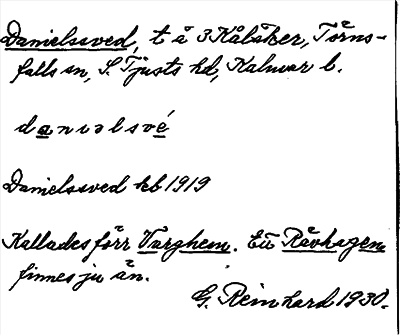 Danielssved, t å 3 Kålåker, Törns-
falls sn, S. Tjusts hd, Kalmar l.
daniəlsvé
Danielssved kb 1919
Kallades förr Varghem. Ett Rävhagen
finnes ju än.
G. Reinhard 1930.